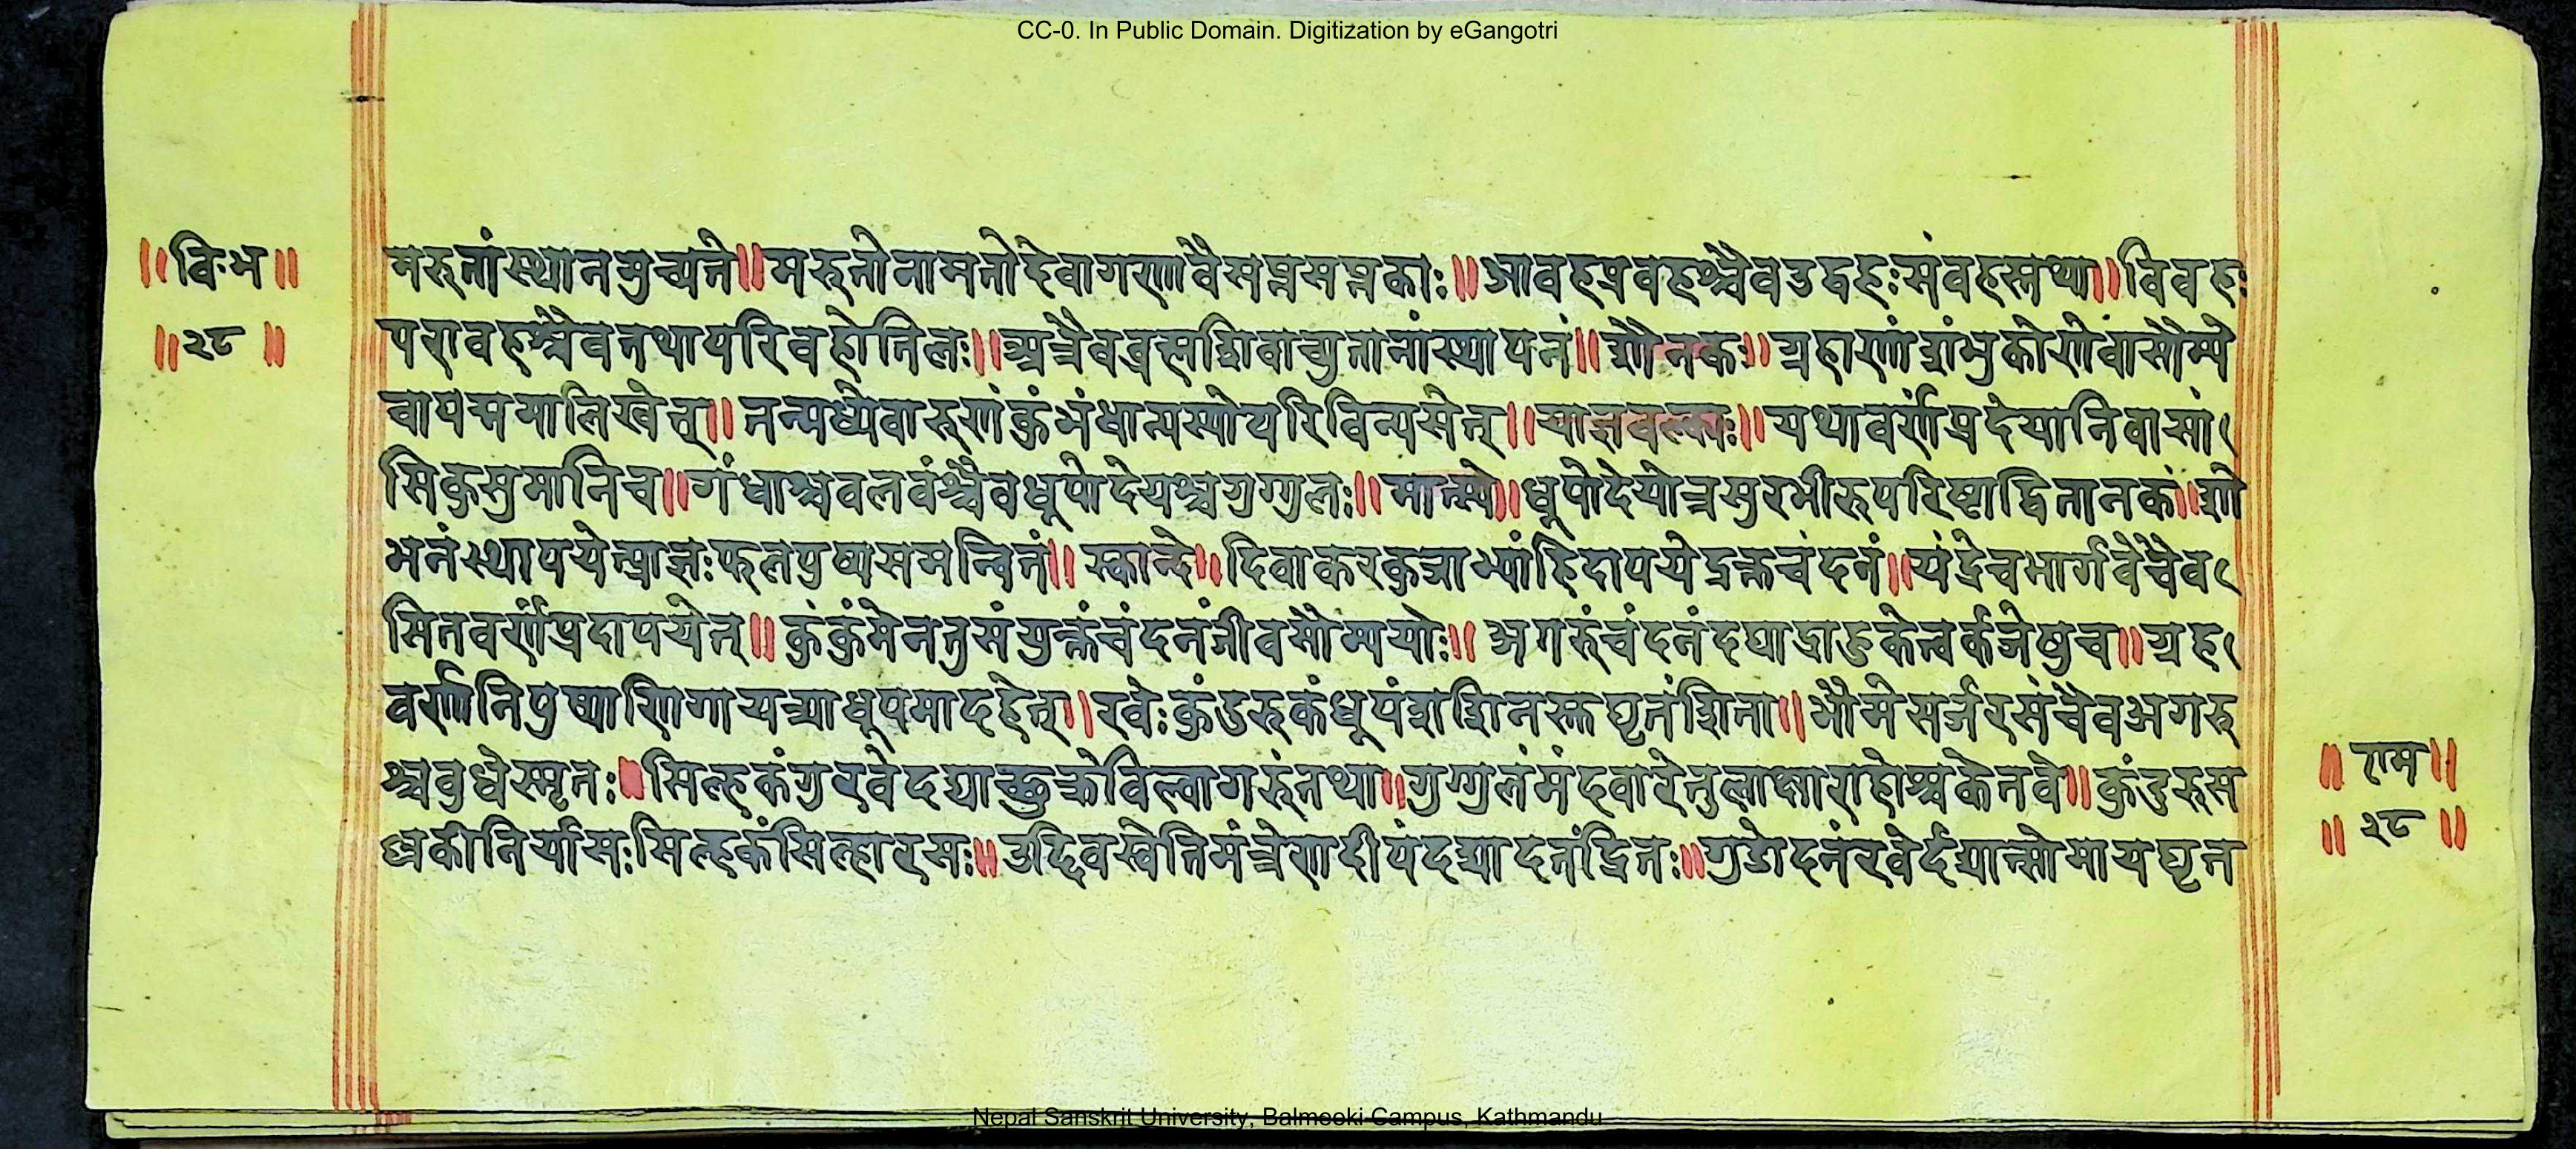 CC-0. In Public Domain. Digitization by eGangotri
॥विःभ॥
॥२८॥
मरुतांस्थानमुच्यते॥मरुतोनामतोदेवागणावैसप्तसप्तकाः॥आवहप्रवहश्चैवउद्वहःसंवहस्तथा॥विवहः
परावहश्चैवतथापरिवहोनिलः॥अत्रैवब्रह्मशिवाच्युतानांस्थापनं॥शौनकः॥ग्रहाणांशंभुकोणेवासौम्ये
वापद्ममालिखेत्॥तन्मध्येवारुणंकुंभंधान्यस्योपरिविन्यसेत्॥याज्ञवल्क्यः॥यथावर्णंप्रदेयानिवासां
सिकुसुमानिच॥गंधाश्चवलवंश्चैवधूपोदेयश्चगुग्गुलः॥मात्स्ये॥धूपोदेयोत्रसुरभीरुपरिष्टाद्वितानकं॥शो
भनंस्थापयेत्प्राज्ञःफलपुष्पसमन्वितं॥स्कान्दे॥दिवाकरकुजाभ्यांहिदापयेद्रक्तचंदनं॥चंद्रेचभार्गवेचैव
सितवर्णंप्रदापयेत्॥कुंकुंमेनतुसंयुक्तंचंदनंजीवसौम्ययोः॥अगरुंचंदनंदद्याद्राहुकेत्वर्कजेषुच॥ग्रह
वर्णानिपुष्पाणिगायत्र्याधूपमादहेत्।रवेःकुंडरुकंधूपंशशिनस्तुघृतंशिता॥भौमेसर्जरसंचैवअगरु
श्चवुधेस्मृतः॥सिल्हकंगुरवेदद्याच्छुक्रेविल्वागरुंतथा॥गुग्गुलंमंदवारेतुलाक्षाराहोश्चकेतवे॥कुंदुरुस
ल्लकीनिर्यासःसिल्हकंसिल्हारसः॥उद्दिवस्वेतिमंत्रेणदीपंदद्यादतंद्रितः॥गुडोदनंरवेर्दद्यात्सोमायघृत
॥राम॥
॥२८॥
Nepal Sanskrit University, Balmeeki Campus, Kathmandu